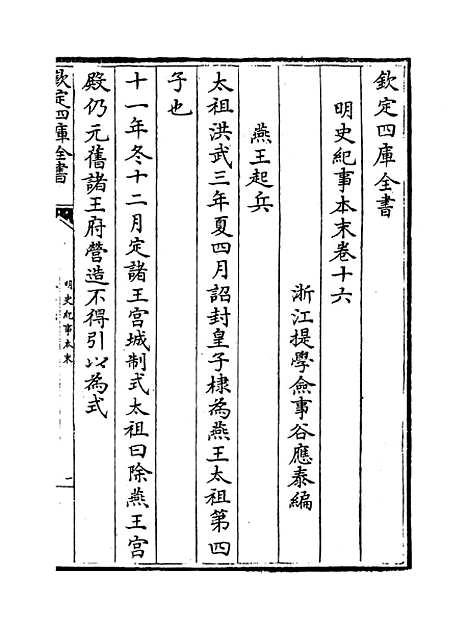 欽定四庫全書
明史紀事本末卷十六
浙江提學僉事谷應泰編
燕王起兵
太祖洪武三年夏四月詔封皇子棣為燕王太祖第四
子也
十一年冬十二月定諸王宮城制式太祖曰除燕王宮
殿仍元舊諸王府營造不得引以為式
欽定四庫全書
明史紀事本末